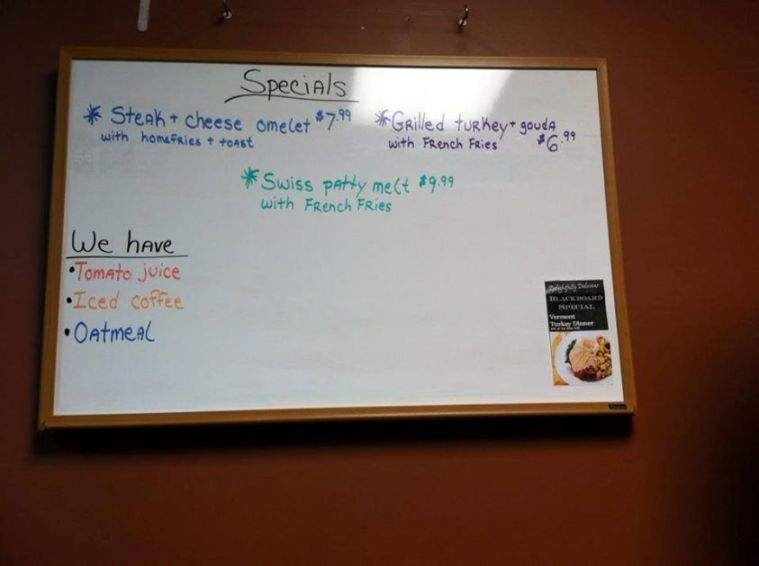 Specials
* Steak + cheese omelet $7.99
with homefries + toast
* Grilled turkey + gouda
with French Fries $6.99
* Swiss patty melt $9.99
with French Fries
We have
• Tomato juice
• Iced coffee
• Oatmeal
Delightfully Delicious
BLACKBOARD
SPECIAL
Vermont
Turkey Dinner